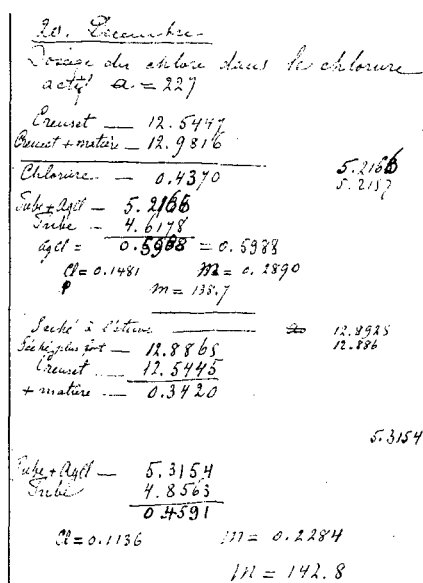 20. Décembre
Dosage du chlore dans le chlorure
actif a = 227
Creuset — 12.5447
Creuset + matière — 12.9816
Chlorure — 0.4370
5.2166
5.2157
Tube + AgCl — 5.2166
Tube — 4.6178
AgCl = 0.5988 = 0.5988
Cl = 0.1481 M = 0.2890
m = 138.7
Séché à l'étuve — 12.8925
12.886
Séché plus fort — 12.8865
Creuset — 12.5445
+ matière — 0.3420
5.3154
Tube + AgCl — 5.3154
Tube 4.8563
0.4591
Cl = 0.1136 M = 0.2284
M = 142.8